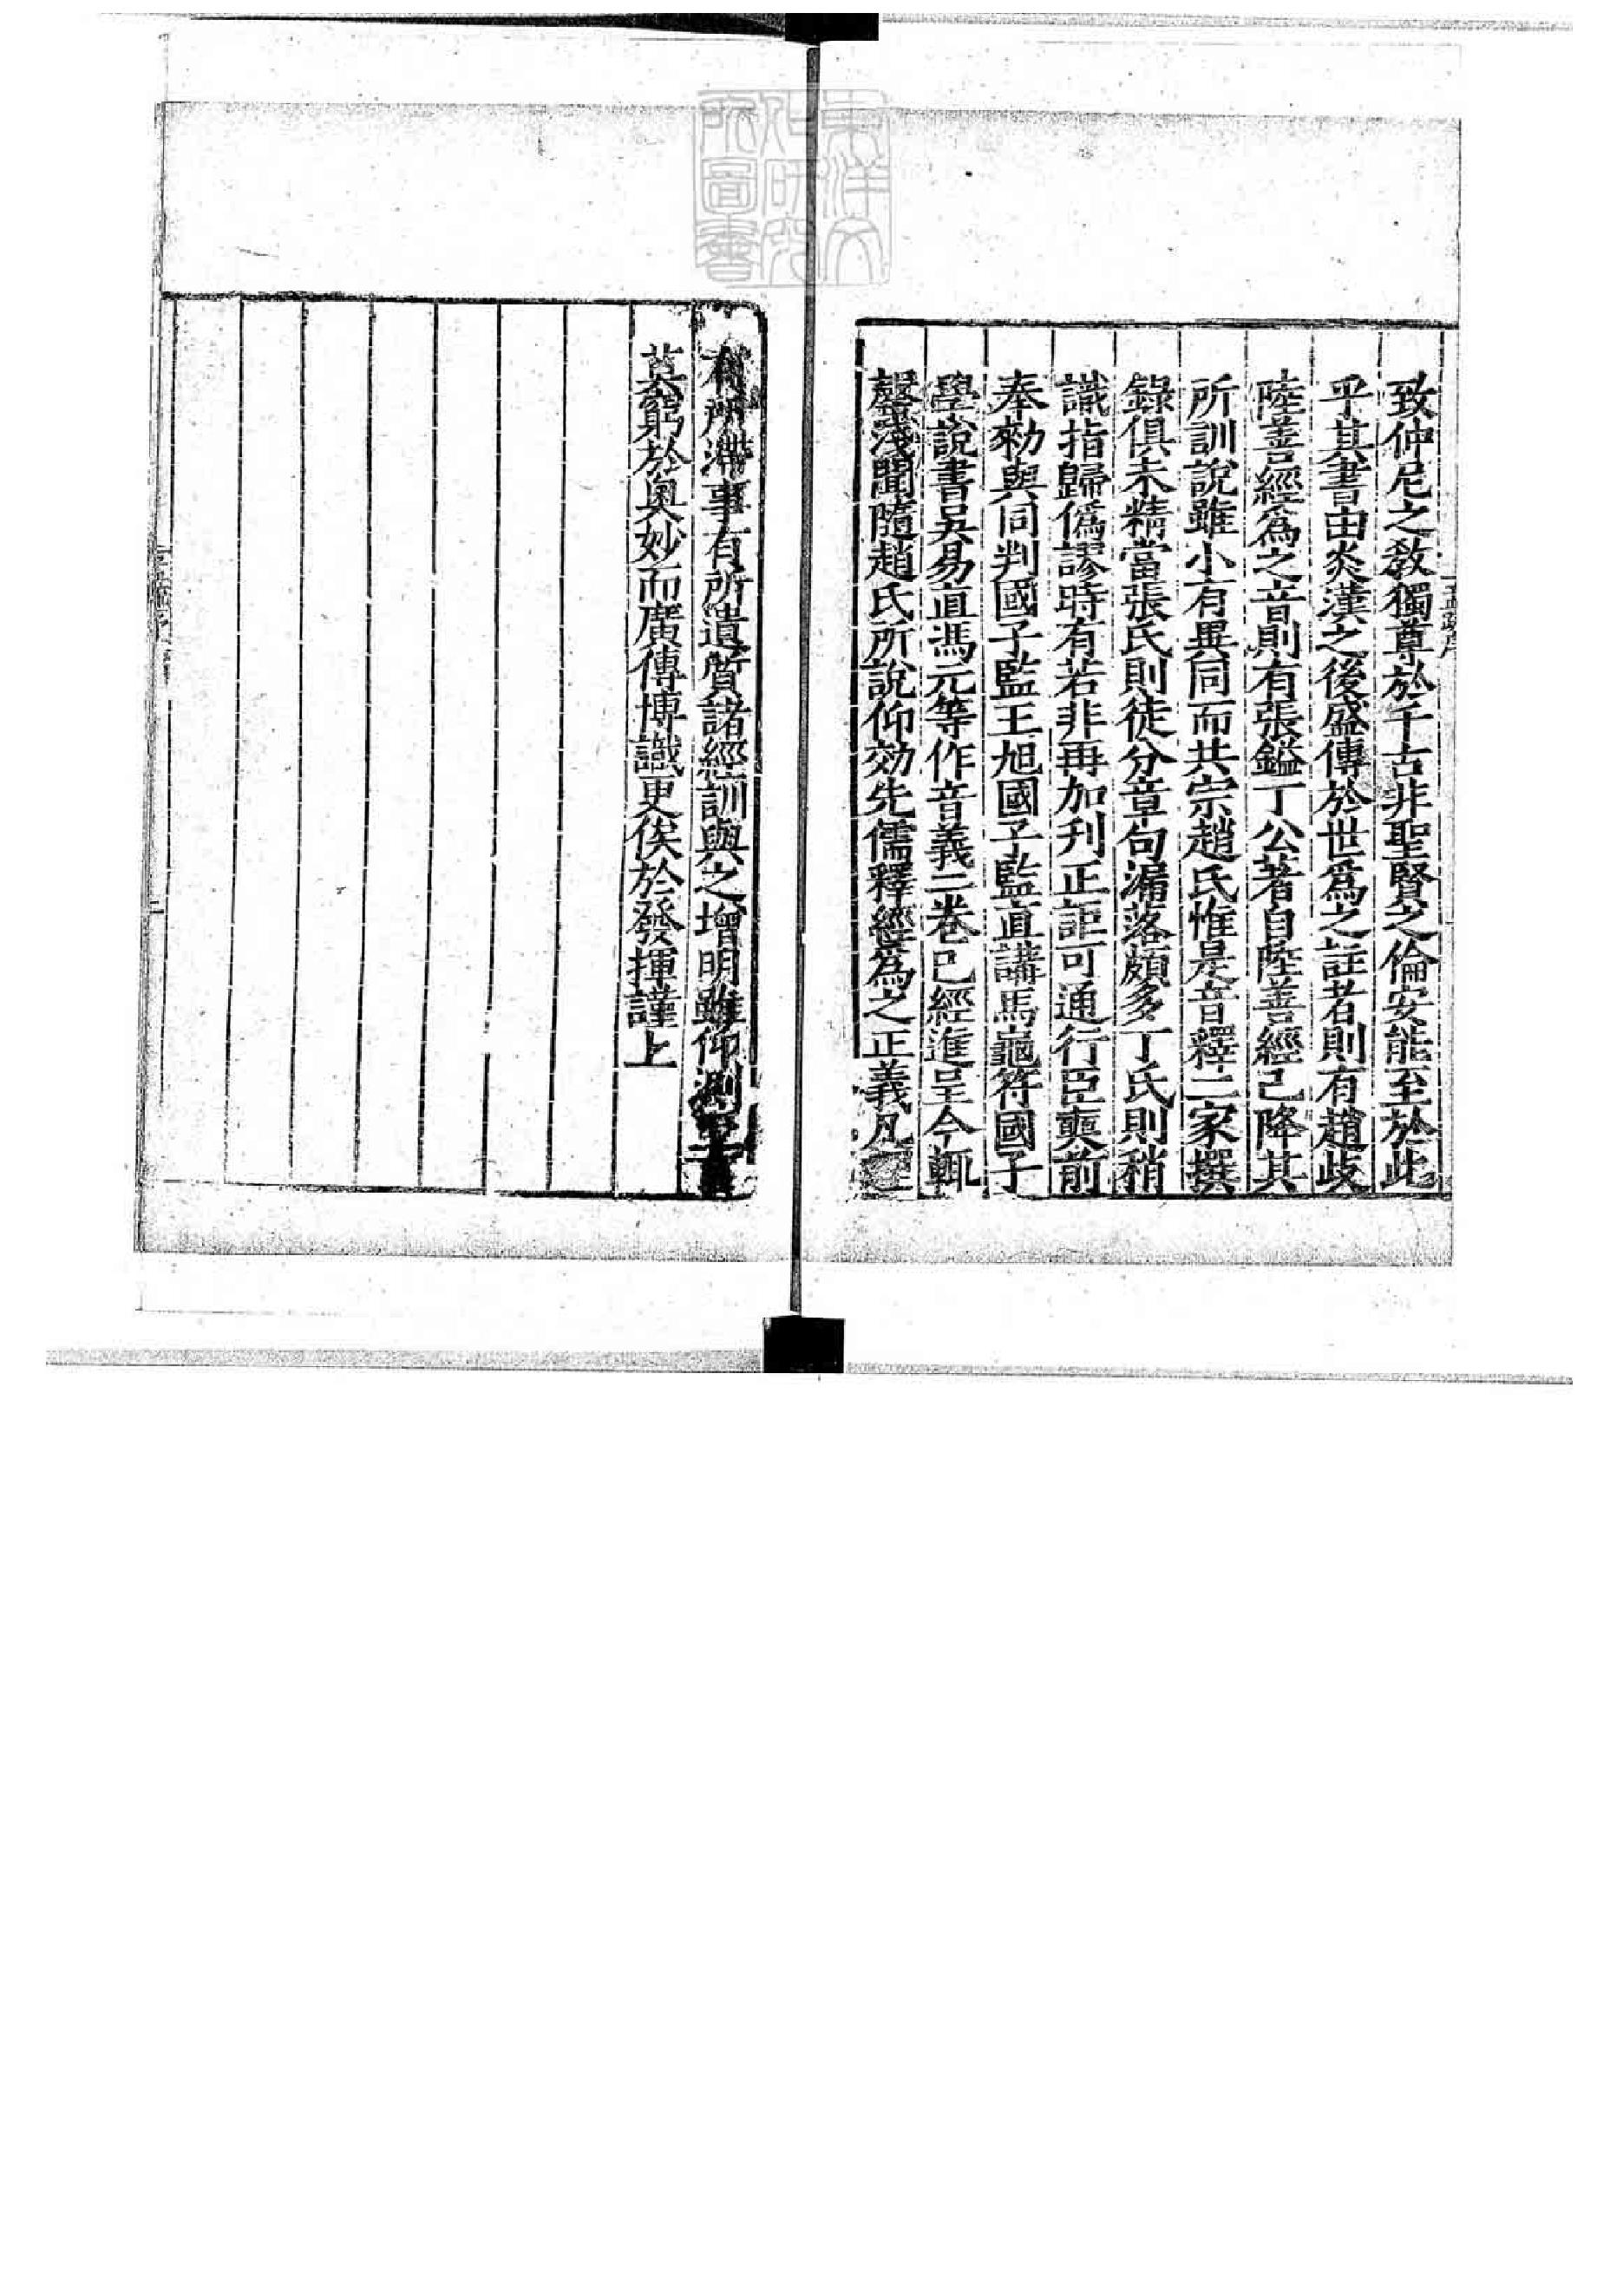 致仲尼之敎獨尊於千古非聖賢之倫安能至於此
乎其書由炎漢之後盛傳於世爲之註者則有趙歧
陸善經爲之音則有張鎰丁公著自陸善經已降其
所訓說雖小有異同而共宗趙氏惟是音釋二家撰
錄俱未精當張氏則徒分章句漏落頗多丁氏則稍
識指歸僞謬時有若非再加刋正詎可通行臣奭前
奉勑與同判國子監王旭國子監直講馬龜符國子
學說書吳易直馮元等作音義二卷已經進呈今輒
罄淺聞隨趙氏所說仰効先儒釋經爲之正義凡
有所滯事有所遺質諸經訓與之增明雖仰測至
莫窮於奥妙而廣傳博識更俟於發揮謹上
東洋文
化研究
所圖書